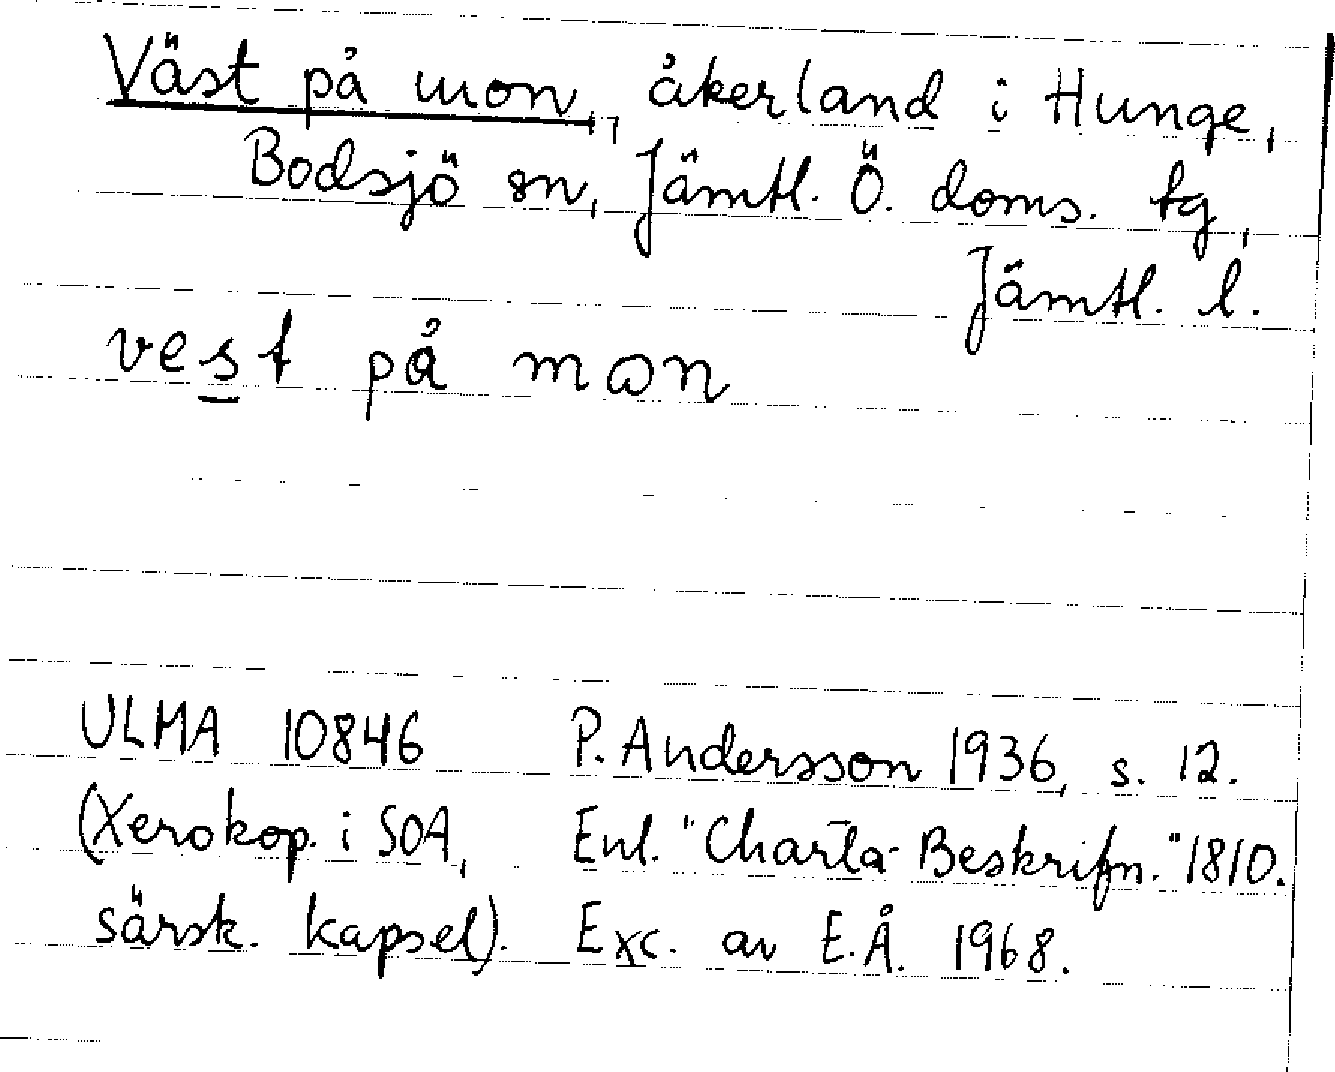 Väst på mon, åkerland i Hunge,
Bodsjö sn, Jämtl. Ö. doms. tg,
Jämtl. l.
vest på mon
ULMA 10846 P. Andersson 1936, s. 12.
(Xerokop. i SOA, Enl. "Charta-Beskrifn." 1810.
särsk. kapsel). Exc. av E.Å. 1968.